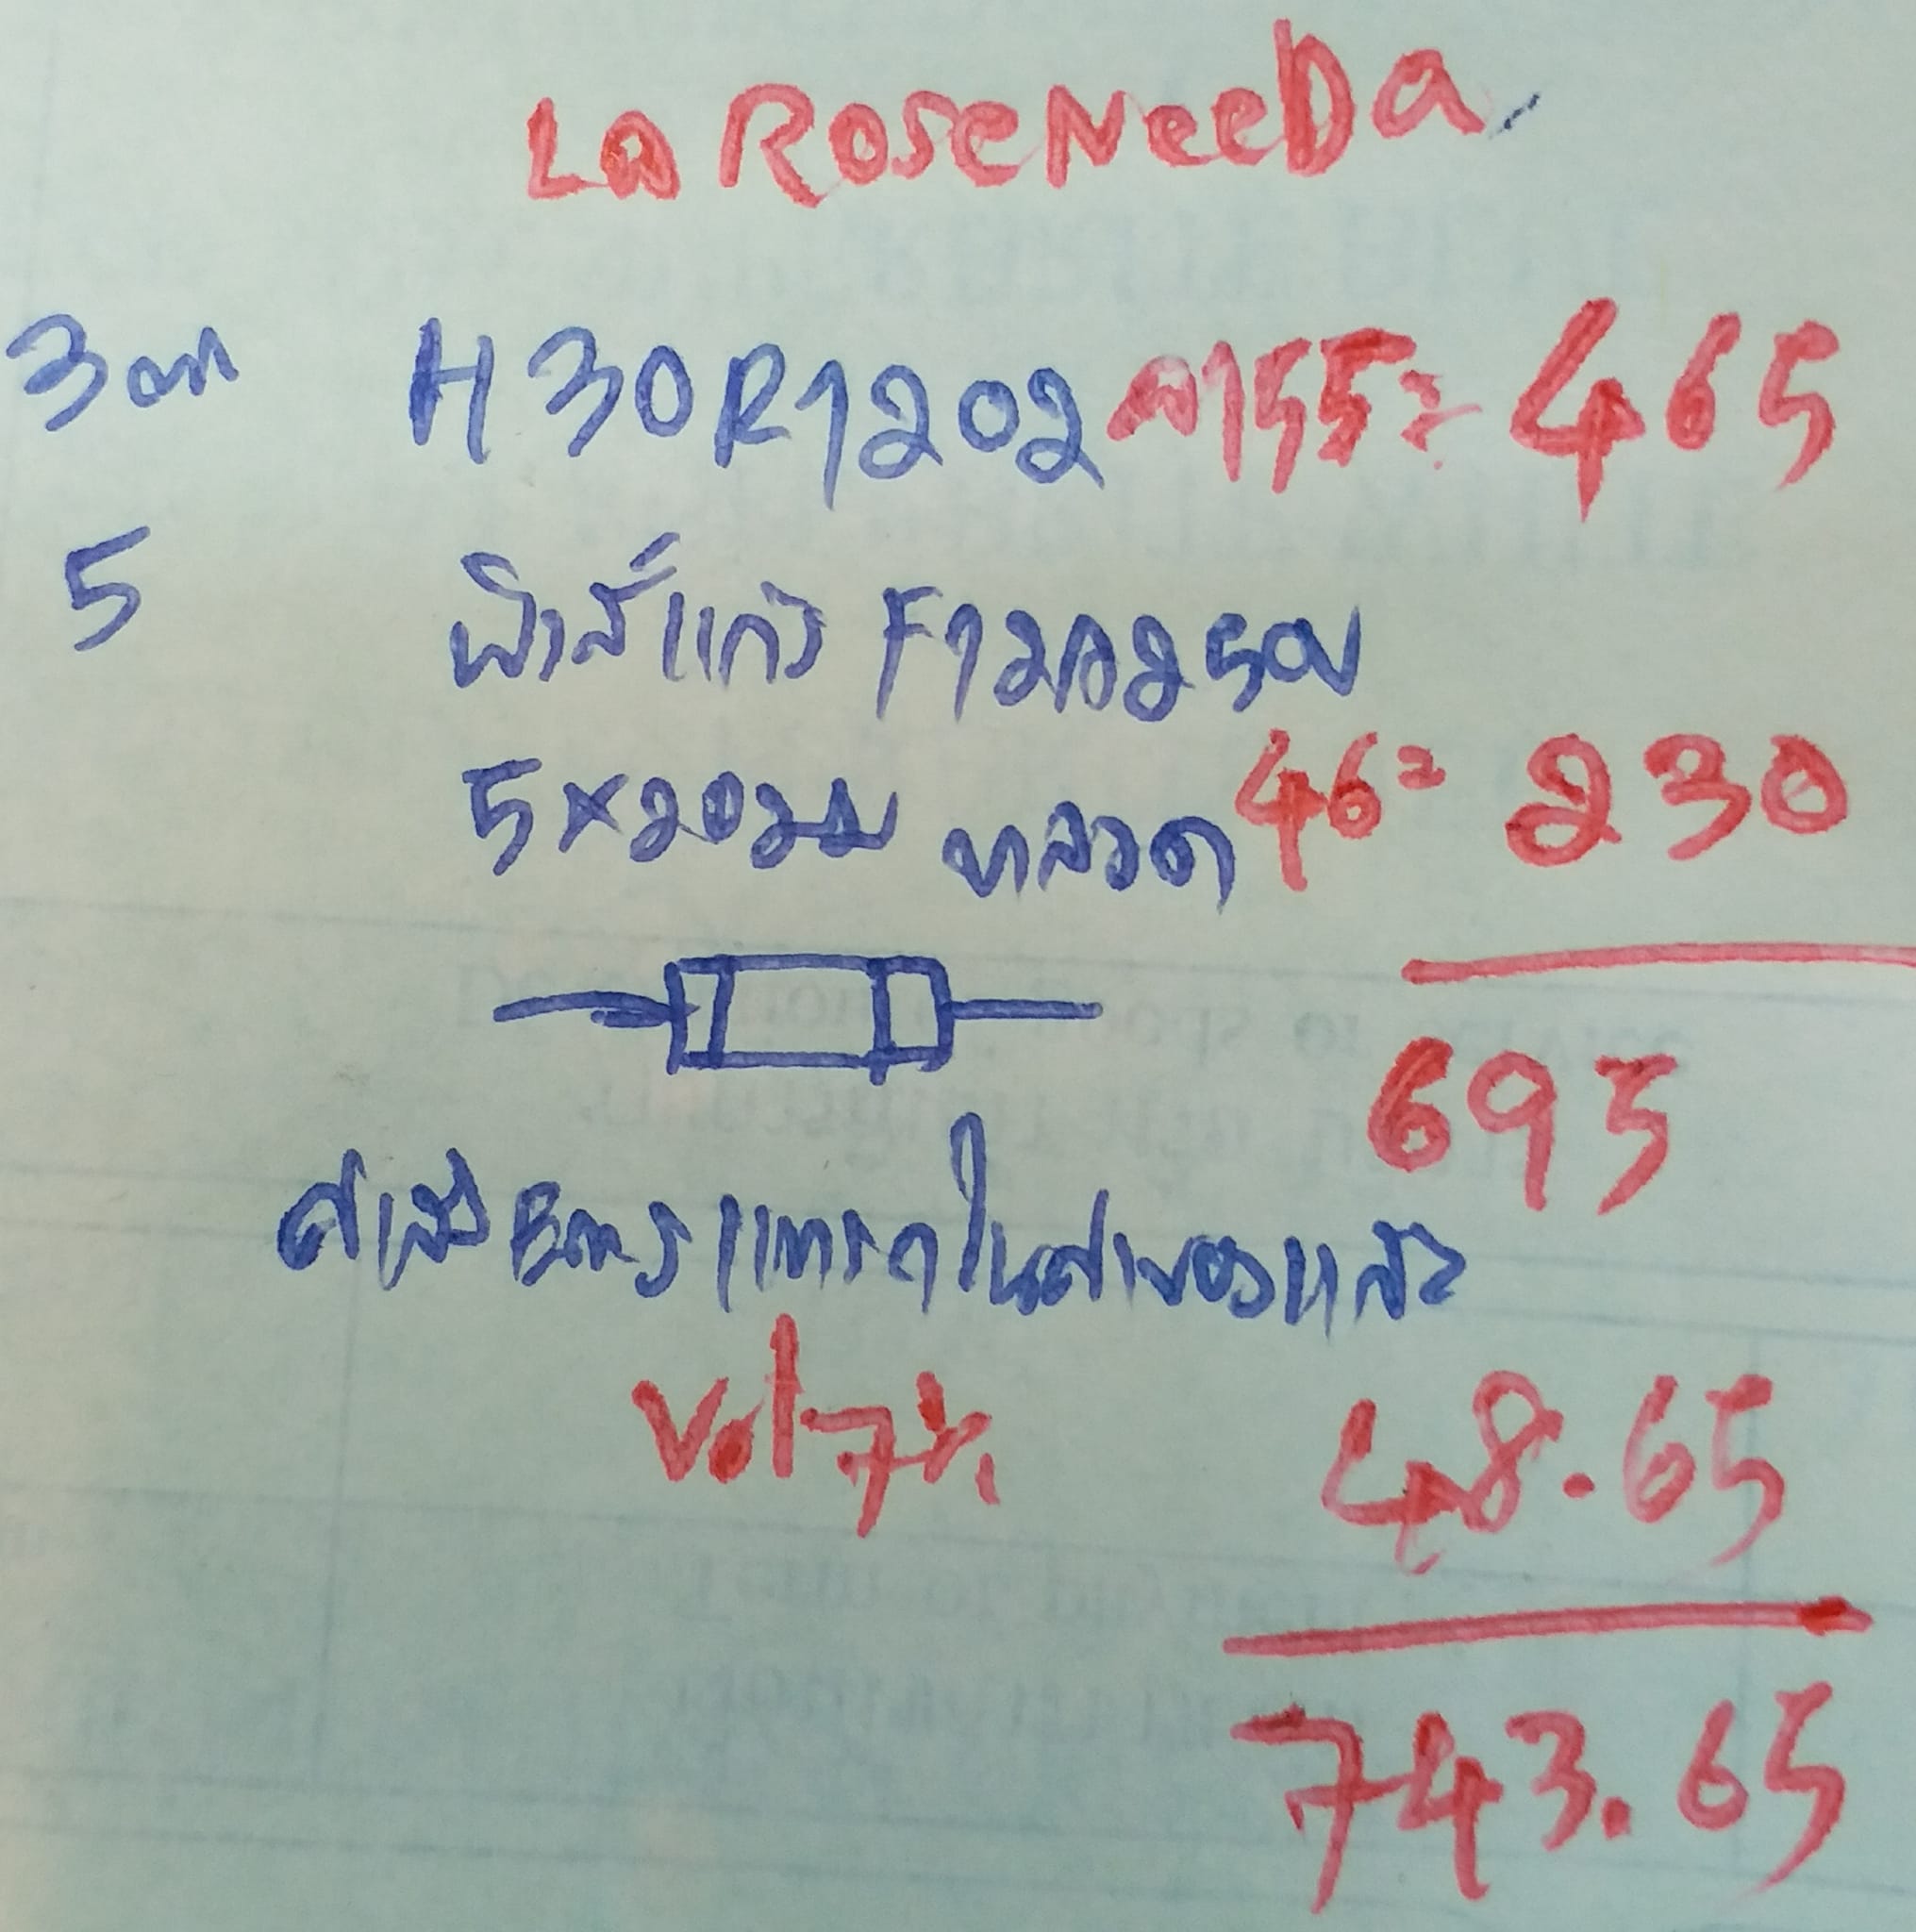 La RoseNeeDa
3 ตัว H30R1202 ตัว155= 465
5 ฟิวส์แก้ว F12A250V
5x20มม หลอด 46= 230
695
ใบสั่งของและ
Vat 7%
48.65
743.65